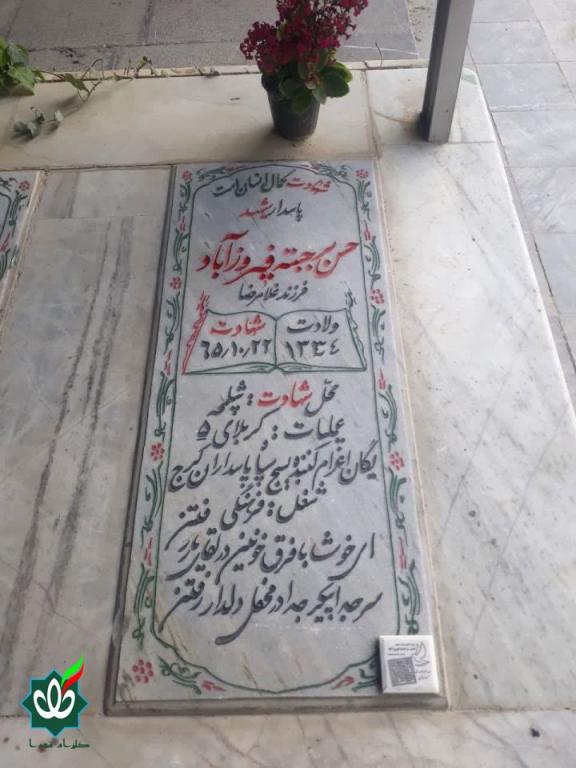 شهادت کمال انسان است
پاسدار شهید
حسن برجسته فیروزآباد
فرزند غلامرضا
ولادت
۱۳۳۴
شهادت
۶۵/۱۰/۲۲
محل شهادت : شلمچه
عملیات : کربلای ۵
یگان اعزام کننده بسیج سپاه پاسداران کرج
شغل : فرهنگی
ای خوشا با فرق خونین در لقای یار رفتن
سر جدا پیکر جدا در محفل دلدار رفتن
گلزار شهدا